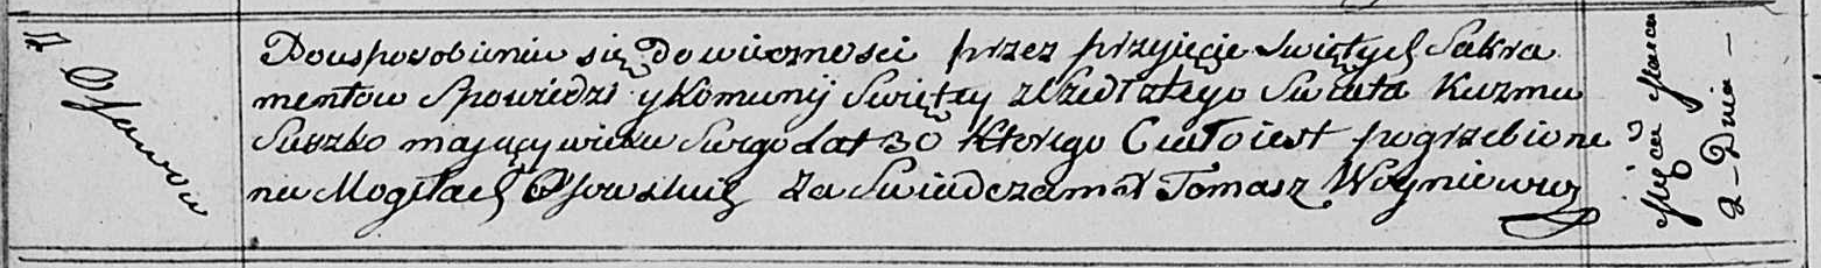 Osowa
Dousposobieniu się Do wieczności przez przyjęcie Swiętych Sakra
mentow Spowiedzi y Komunij Swiętey zszedł ztego Swiata Kuzma
Suszko maiący wieku Swego lat 30 Ktorego Ciało iest pogrzebione
na Mogiłach Osowskich Za Swiadczam X Tomasz Woyniewicz
Męca Marca
2 - Dnia -